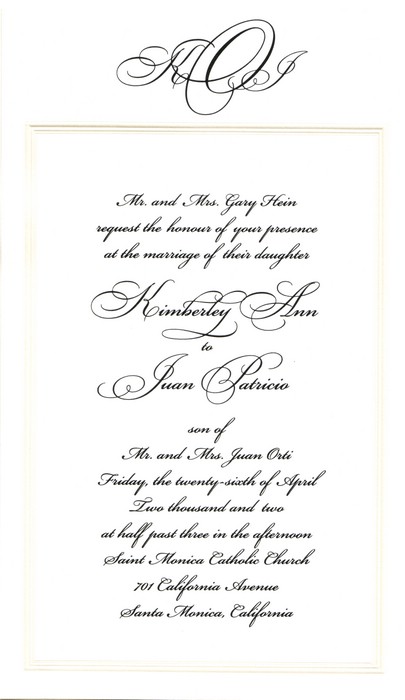 KOJ
Mr. and Mrs. Gary Hein
request the honour of your presence
at the marriage of their daughter
Kimberley Ann
to
Juan Patricio
son of
Mr. and Mrs. Juan Orti
Friday, the twenty-sixth of April
Two thousand and two
at half past three in the afternoon
Saint Monica Catholic Church
701 California Avenue
Santa Monica, California